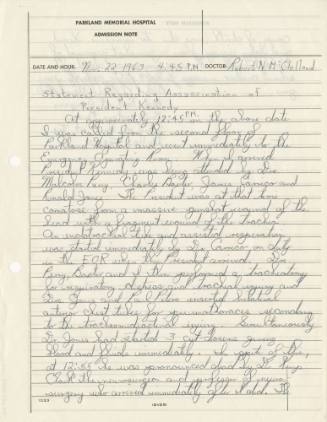 PARKLAND MEMORIAL HOSPITAL
ADMISSION NOTE
DATE AND HOUR Nov. 22 1963 4:45 P.M. DOCTOR: Robert N. McClelland
Statement Regarding Assassination of
President Kennedy
At approximately 12:45 PM on the above date
I was called from the second floor of
Parkland Hospital and went immediately to the
Emergency Operating Room. When I arrived
President Kennedy was being attended by Drs
Malcolm Perry, Charles Baxter, James Carrico and
Ronald Jones. The President was at that time
comatose from a massive gunshot wound of the
head with a fragment wound of the trachea.
An endotracheal tube and assisted respiration
was started immediately by Dr. Carrico on duty
in the EOR when the President arrived. Drs.
Perry, Baxter and I then performed a tracheotomy
for respiratory distress and tracheal injury and
Dr. Jones and Paul Peters inserted bilateral
anterior chest tubes for pneumothoraces secondary
to the tracheomediastinal injury. Simultaneously
Dr. Jones had started 3 cut-downs giving
blood and fluids immediately. In spite of this,
at 12:55 he was pronounced dead by Dr. Kemp
Clark the neurosurgeon and professor of neuro-
surgery who arrived immediately after I did. The